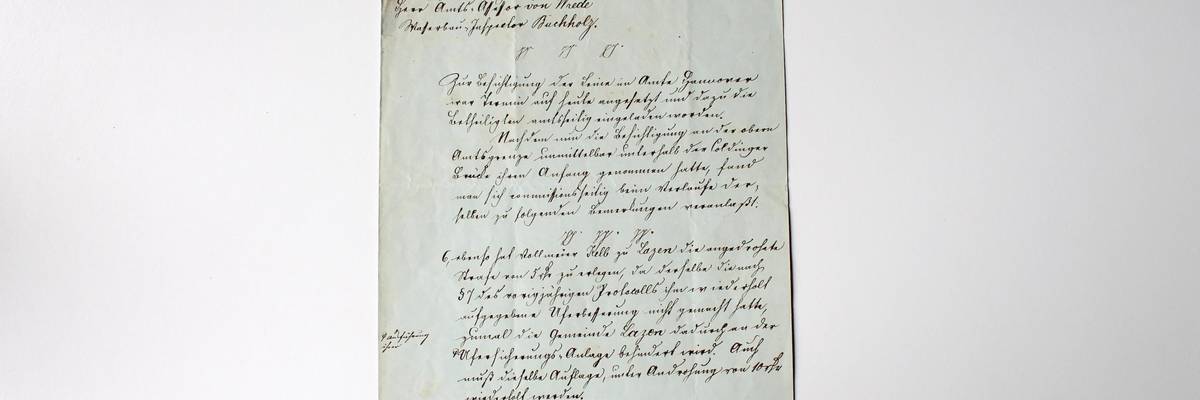 Herr Amts-Assessor von Wrede
Waßerbau-Inspector Buchholz.
pp pp pp.
Zur Besichtigung der Leine im Amte Hannover
war Termin auf heute angesetzt und dazu die
Betheiligten amtsseitig eingeladen worden.
Nachdem nun die Besichtigung an der obern
Amtsgrenze unmittelbar unterhalb der Coldinger
Brücke ihren Anfang genommen hatte, fand
man sich commissionsseitig beim Verlaufe der-
selben zu folgenden Bemerkungen veranlaßt.
pp. pp. pp.
6, ebenso hat Vollmeier Kelb zu Lazen die angedrohete
Strafe von 5 rthr zu erlegen, da derselbe die nach
§7 des vorigjährigen Protocolls ihm wiederholt
aufgegebene Uferbesserung nicht gemacht hatte,
zumal die Gemeinde Lazen dadurch an der
Ufersicherungs-Anlage behindert wird. Auch
muß dieselbe Auflage, unter Androhung von 10 rthr
wiederholt werden.
Ausführung
ihrer